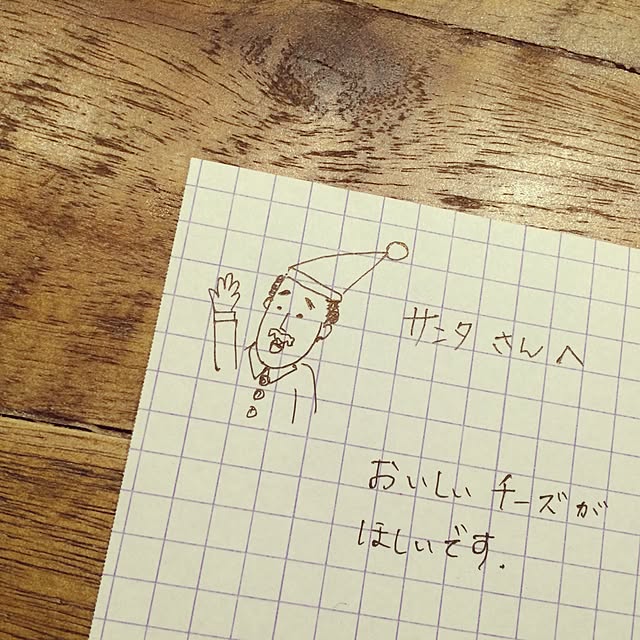 サンタさんへ
おいしいチーズが
ほしいです.